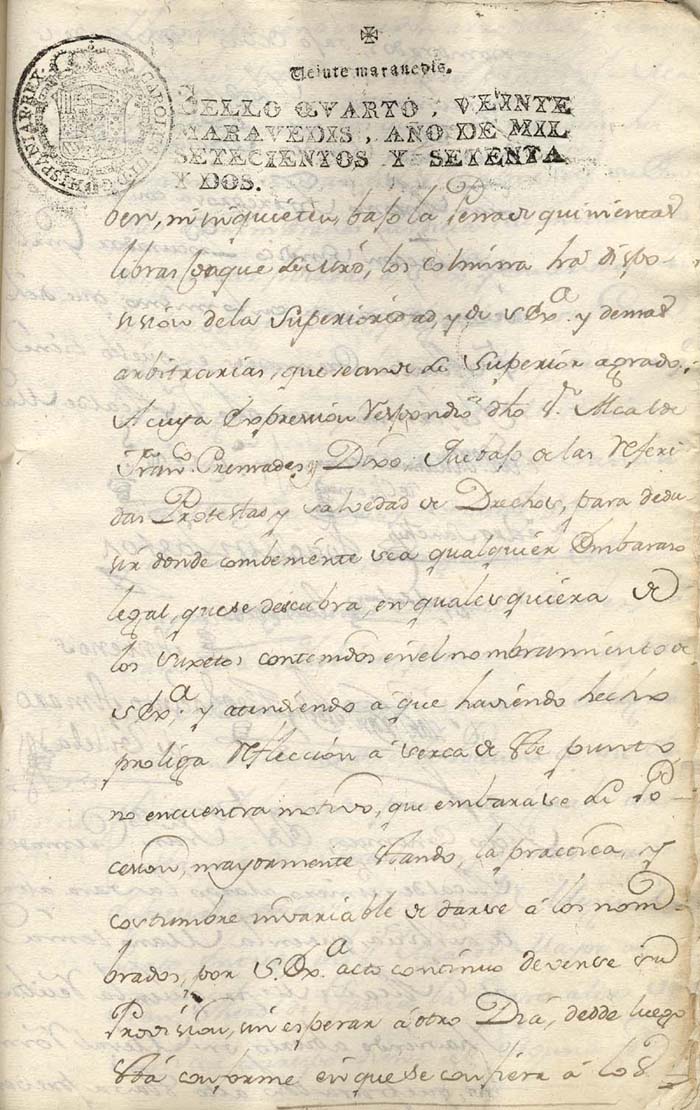 CAROLUS III D G HISPANIAR REX
Veinte maravedis.
SELLO QVARTO, VEINTE
MARAVEDIS, AÑO DE MIL
SETECIENTOS Y SETENTA
Y DOS.
ben, ni inquieten, bajo la Pena de quinientas
libras
sision de la Superioridad, y de S. Exª. y demas
arbitrarias, que sean de su Superior agrado.
A cuya Expresion respondio dho Sr. Alcalde
Franco. y Dixo: Que bajo de las referi
das Protestas y salvedad de Drechos, para dedu
sir donde combeniente sea qualquier Embaraso
legal, que se descubra, en qualesquiera de
los suxetos contenidos en el nombramiento de
S. Exª. y atendiendo à que haviendo hecho
proliga reflección à serca de Este punto
no encuentra motivo, que embarase su Po
cesion, mayormente Estando, la practica, y
costumbre invariable de darse à los nom
brados, por S. Exª. acto continuo de verse su
Provision, sin esperar à otro Dia, desde luego
Està conforme en que se confiera à los